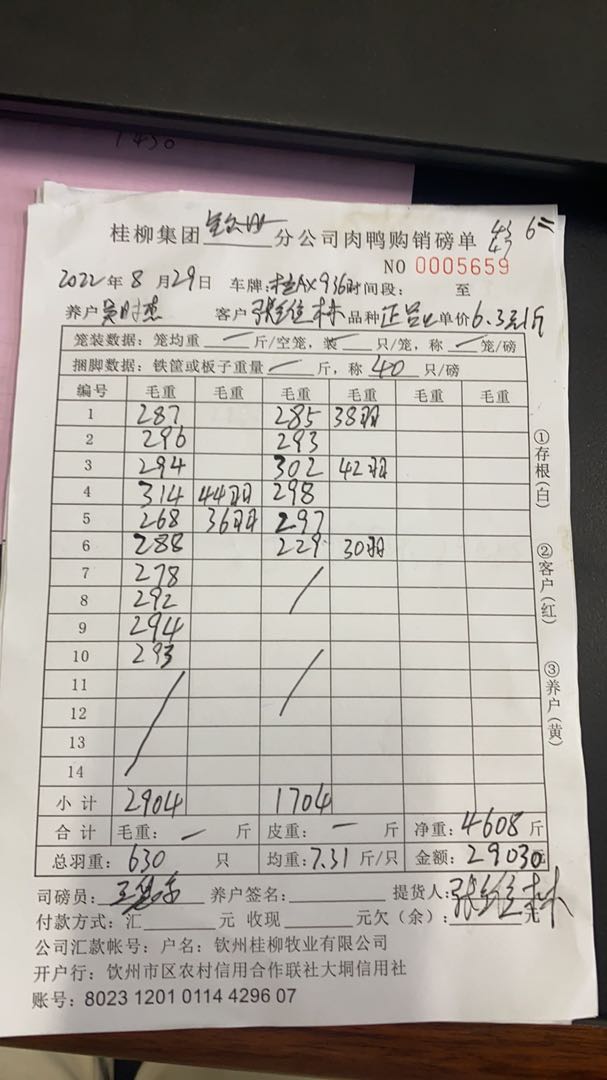 1430
桂柳集团 分公司肉鸭购销磅单
43
47
6=
NO 0005659
2022年 8 月 29日 车牌: 桂AX936 时间段: 至
养户 客户 张 林 品种 单价 6.3元/斤
笼装数据: 笼均重 一 斤/空笼, 装 一 只/笼, 称 一 笼/磅
捆脚数据: 铁筐或板子重量 一 斤, 称 40 只/磅
编号 毛重 毛重 毛重 毛重 毛重 毛重
1 287 285 38羽
2 296 293
3 294 302 42羽
4 314 44羽 298
5 268 36羽 297
6 288 229 30羽
7 278
8 292
9 294
10 293
11
12
13
14
小计 2904 1704
合计 毛重: 一 斤 皮重: 一 斤 净重: 4608 斤
总羽重: 630 只 均重: 7.31 斤/只 金额: 29030 元
司磅员: 养户签名: 提货人: 张 林
付款方式: 汇 元 收现 元欠(余): 元
公司汇款帐号: 户名: 钦州桂柳牧业有限公司
开户行: 钦州市区农村信用合作联社大垌信用社
账号: 8023 1201 0114 4296 07
①存根(白)
②客户(红)
③养户(黄)